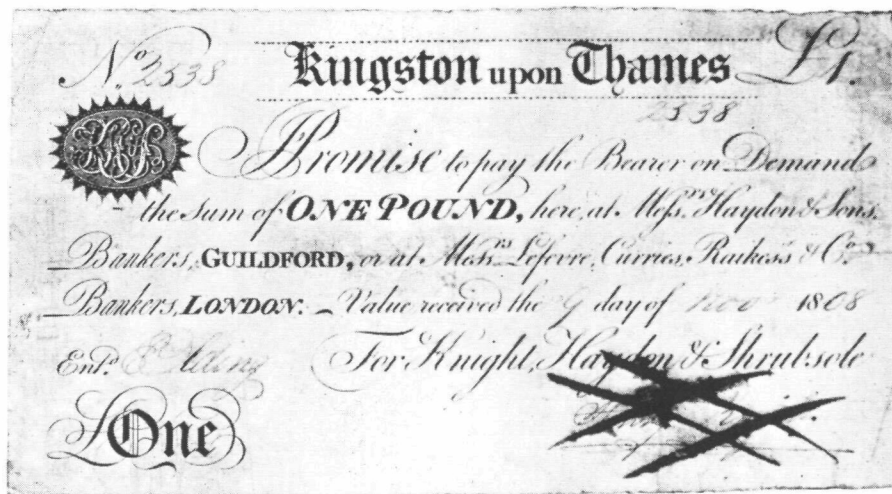 No. 2538 Kingston upon Thames £1.
2538
I Promise to pay the Bearer on Demand
the Sum of ONE POUND, here, at Messrs. Haydon & Sons.
Bankers, GUILDFORD, or at Messrs. Lefevre, Curries, Raikes's & Co.
Bankers, LONDON. Value received the 9 day of Nov 1808
Entd. For Knight, Haydon & Shrubsole
£One